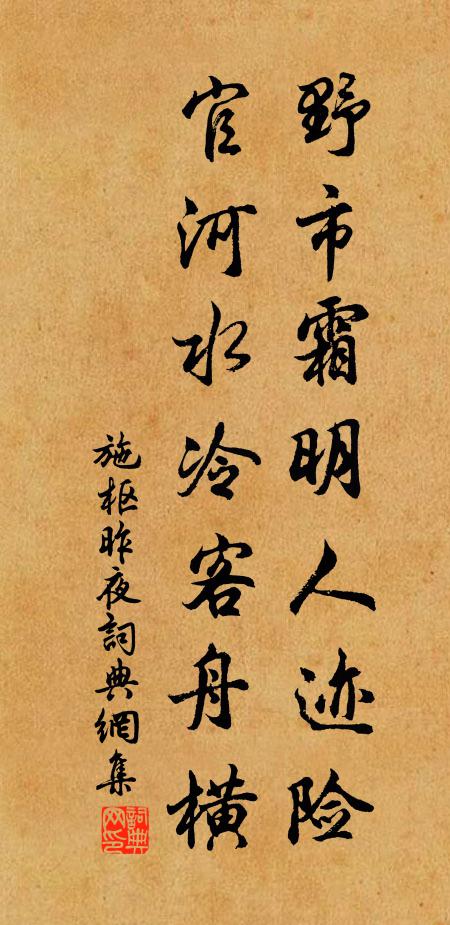 野市霜明人迹险
官河水冷客舟横
施枢昨夜詞典網集
詞典網印